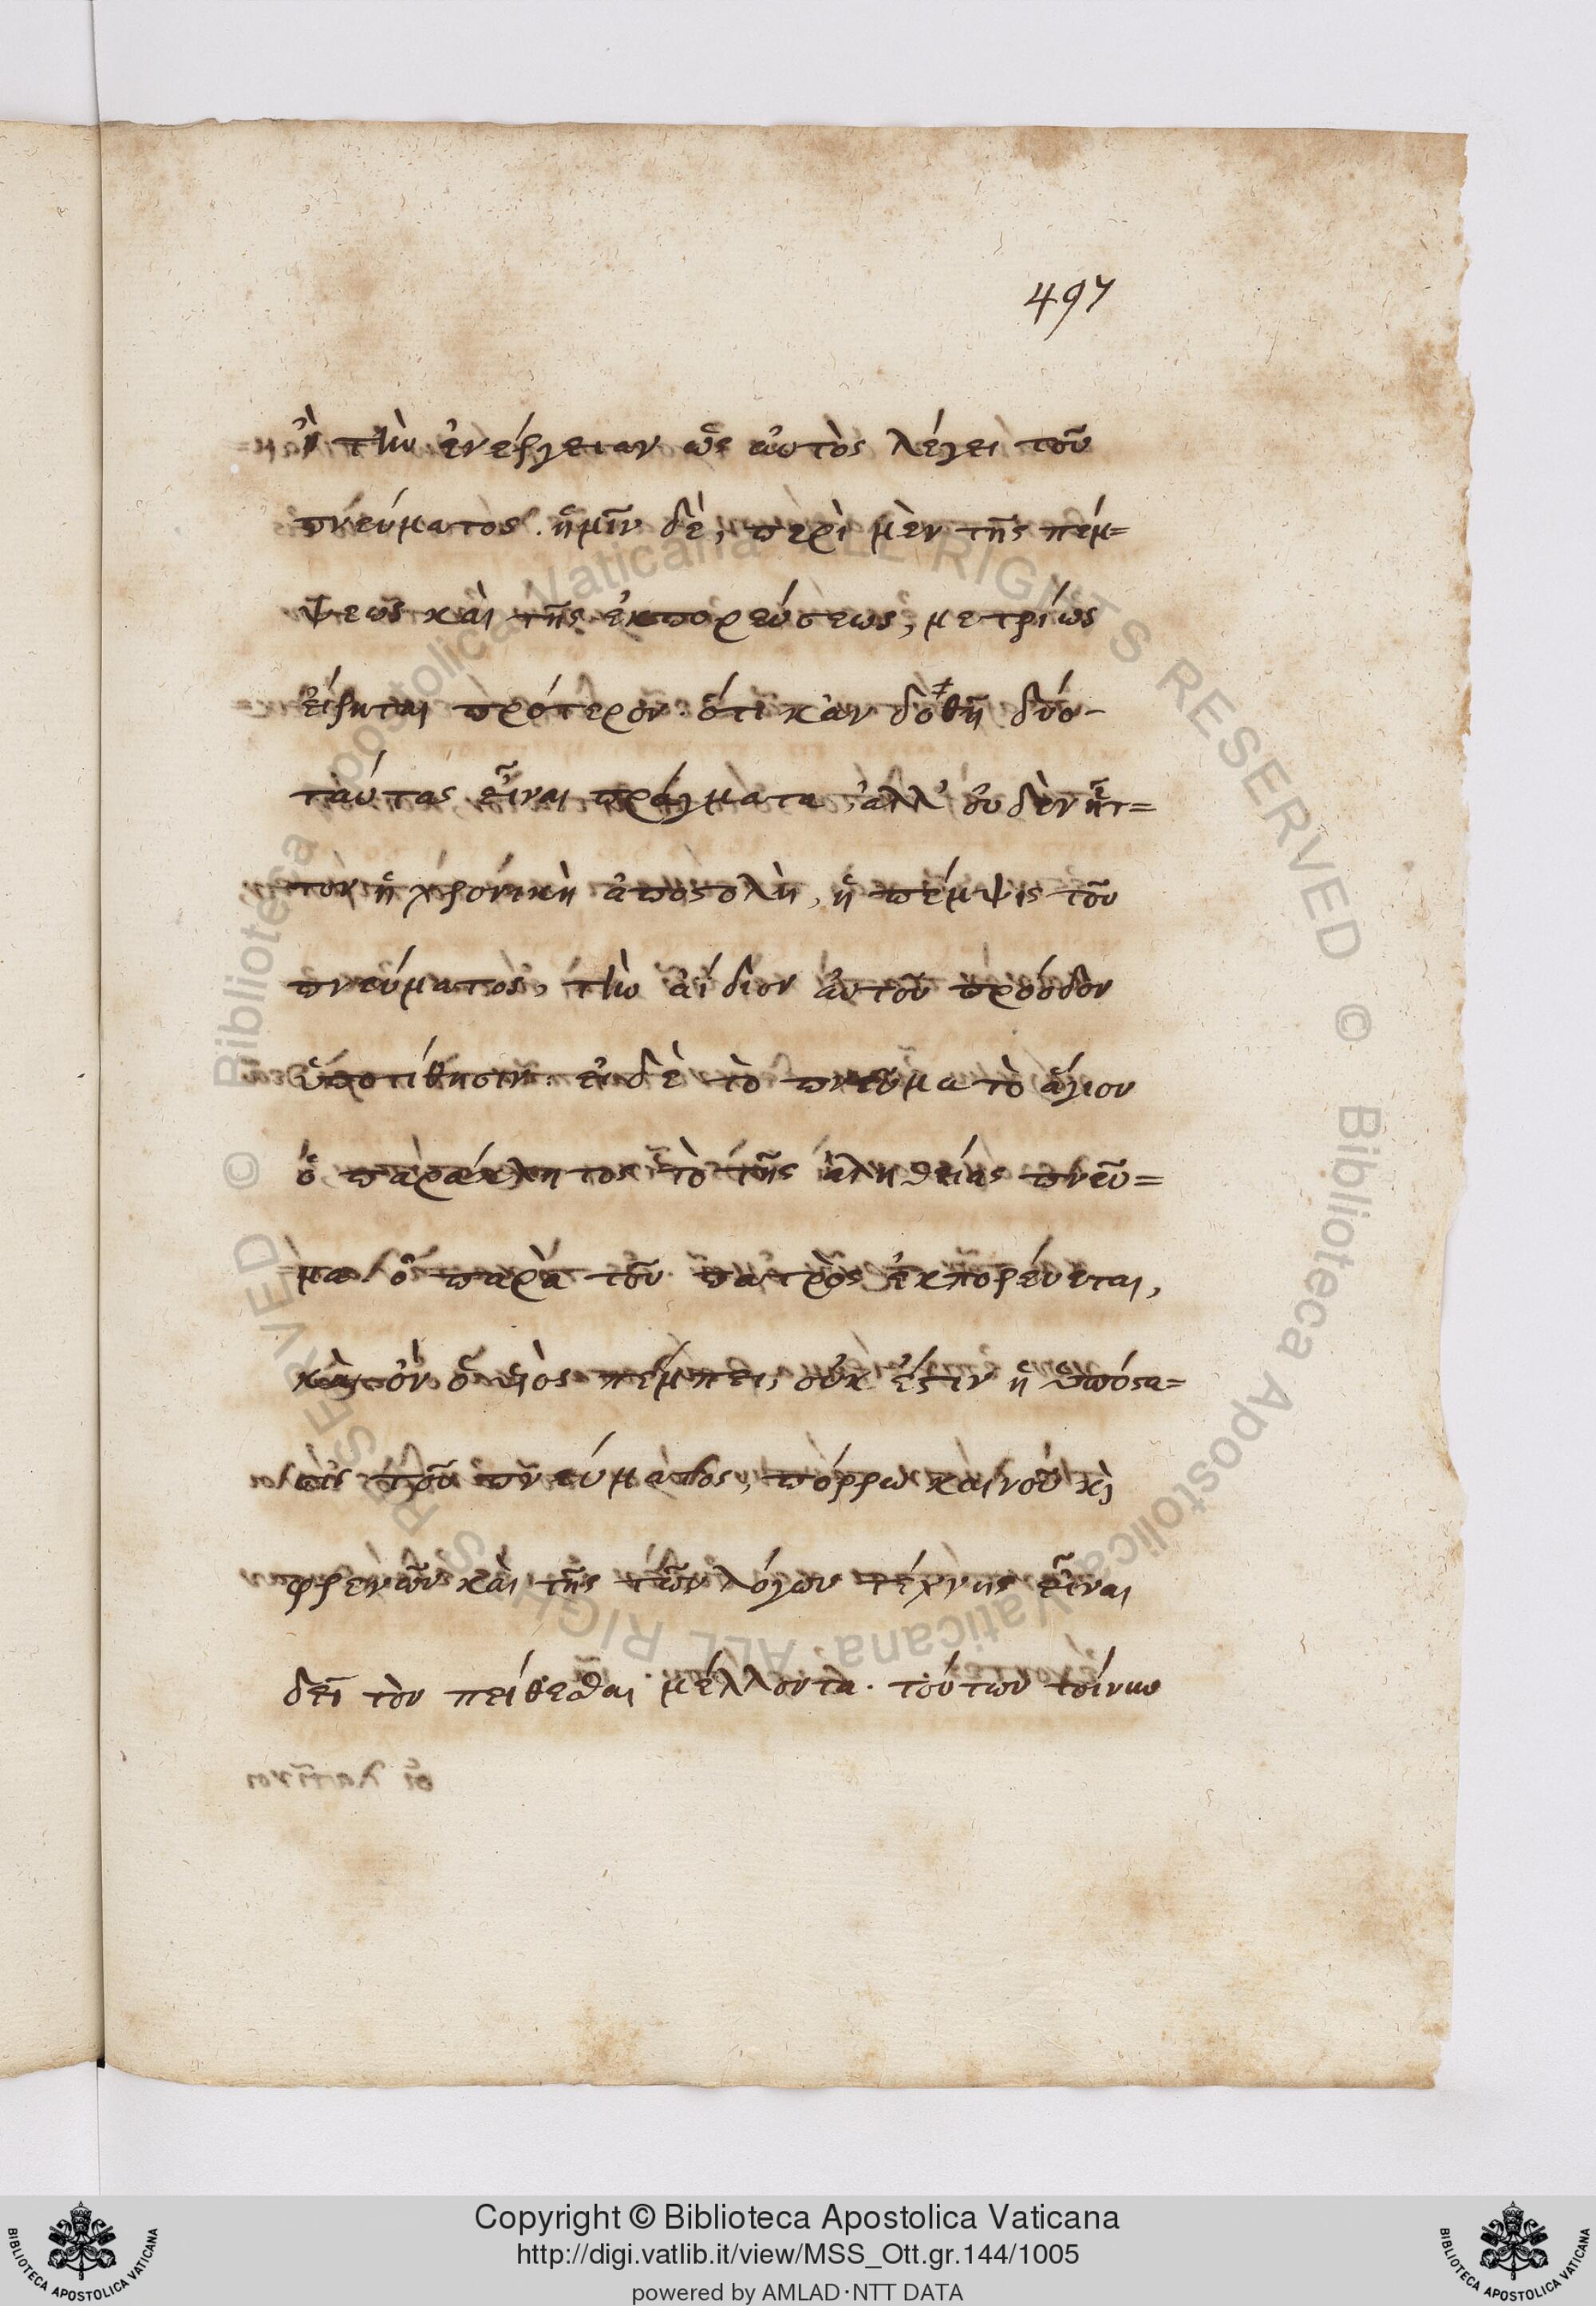 497
ἢ τὴν ἐνέργειαν ὡς αὐτὸς λέγει τοῦ
πνεύματος. ἡμῖν δὲ, περὶ μὲν τῆς πέμ=
ψεως καὶ τῆς ἐκπορεύσεως, μετρίως
εἴρηται πρότερον. ὅτι κἂν δοθῇ δύο
ταύτας εἶναι πράγματα, ἀλλ' οὐδὲν ἧτ=
τον ἡ χρονικὴ ἀποστολὴ, ἡ πέμψις τοῦ
πνεύματος, τὴν ἀΐδιον αὐτοῦ πρόοδον
ὑποτίθησιν. εἰ δὲ τὸ πνεῦμα τὸ ἅγιον
ὁ παράκλητος τὸ τῆς ἀληθείας πνεῦ=
μα ὃ παρὰ τοῦ πατρὸς ἐκπορεύεται,
καὶ ὃν ὁ υἱὸς πέμπει, οὐκ ἔστιν ἡ ὑπόστα=
σις τοῦ πνεύματος, πόρρω καὶ νοῦ κὶ
φρενῶν καὶ τῆς τῶν λόγων τέχνης εἶναι
δεῖ τὸν πείθεσθαι μέλλοντα. τούτων τοίνυν
οἱ λατῖνοι
Biblioteca Apostolica Vaticana ALL RIGHTS RESERVED © Biblioteca Apostolica Vaticana ALL RIGHTS RESERVED ©
Copyright © Biblioteca Apostolica Vaticana
http://digi.vatlib.it/view/MSS_Ott.gr.144/1005
powered by AMLAD·NTT DATA
BIBLIOTECA APOSTOLICA VATICANA
BIBLIOTECA APOSTOLICA VATICANA